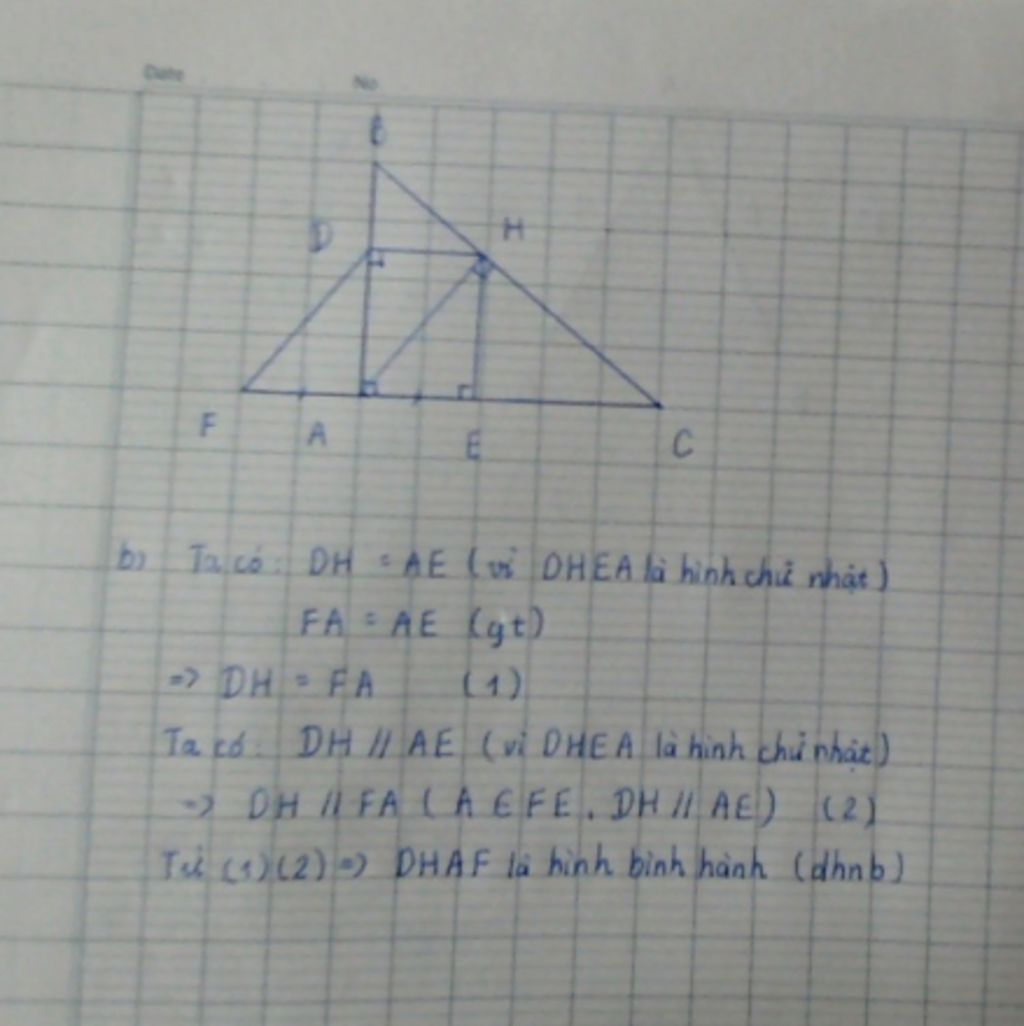 Date No
B
D H
F A E C
b) Ta có: DH = AE (vì DHEA là hình chữ nhật)
FA = AE (gt)
=> DH = FA (1)
Ta có: DH // AE (vì DHEA là hình chữ nhật)
=> DH // FA (A ∈ FE, DH // AE) (2)
Từ (1)(2) => DHAF là hình bình hành (dhnb)